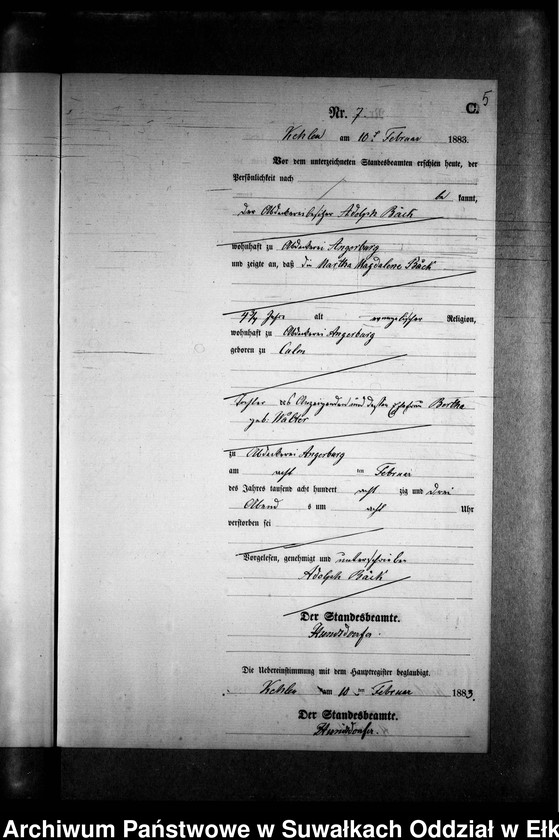 5
Nr. 7 C.
Kehlen am 10ten Februar 1883.
Vor dem unterzeichneten Standesbeamten erschien heute, der
Persönlichkeit nach
be kannt,
der Abdeckereibesitzer Adolph Bäck
wohnhaft zu Abdeckerei Angerburg
und zeigte an, daß die Martha Magdalene Bäck
4 Jahre alt evangelischer Religion,
wohnhaft zu Abdeckerei Angerburg
geboren zu Culm
Tochter des Anzeigenden und dessen Ehefrau Bertha
geb: Walter
zu Abdeckerei Angerburg
am acht ten Februar
des Jahres tausend acht hundert acht zig und drei
Abend s um acht Uhr
verstorben sei
Vorgelesen, genehmigt und unterschrieben
Adolph Bäck
Der Standesbeamte.
Hundsdörfer.
Die Uebereinstimmung mit dem Hauptregister beglaubigt.
Kehlen am 10 ten Februar 1883.
Der Standesbeamte.
Hundsdörfer.
Archiwum Państwowe w Suwałkach Oddział w Ełk